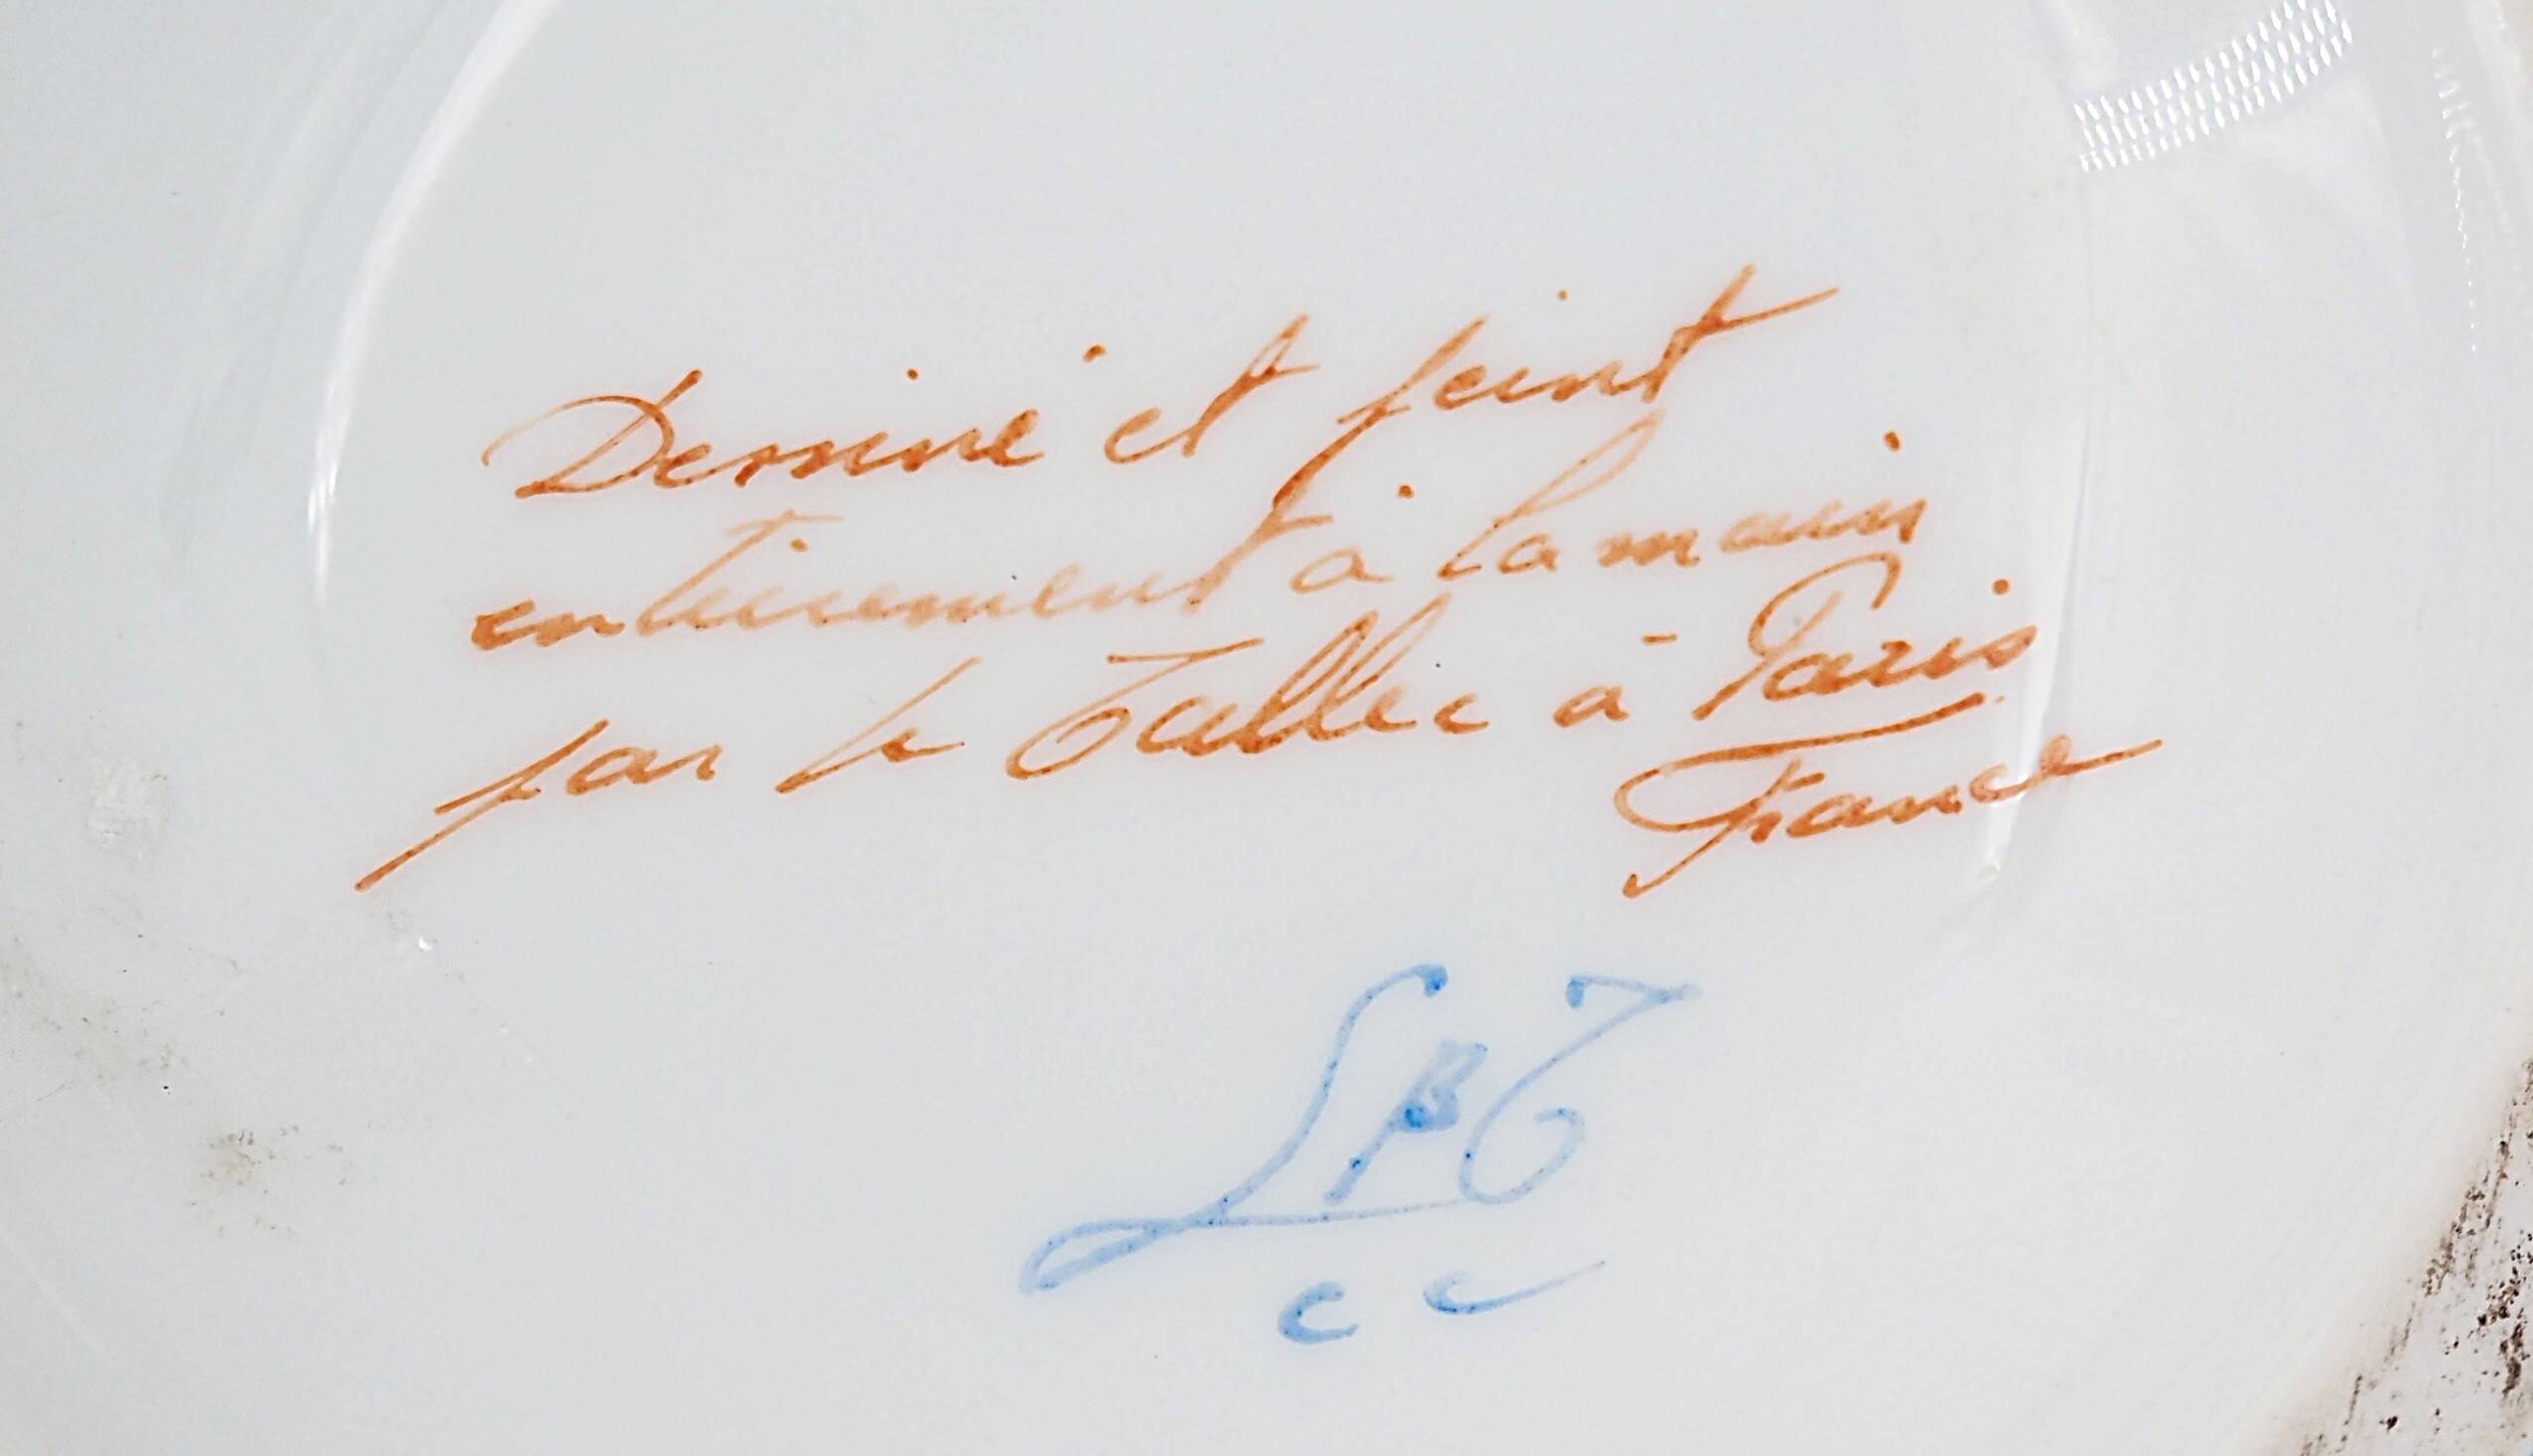 Dessiné et peint
entièrement à la main
par Le Tallec à Paris
France
LBT
c c